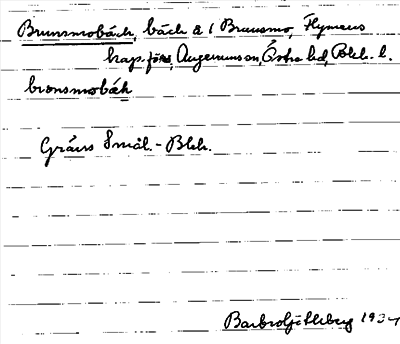 Brunsmobäck, bäck å i Brunsmo, Flymens
kap.förs, Augerumssn, Östra hd, Blek. l.
brɷnsmobäk
Gräns Smål. - Blek.
Barbro Ljétteberg 193